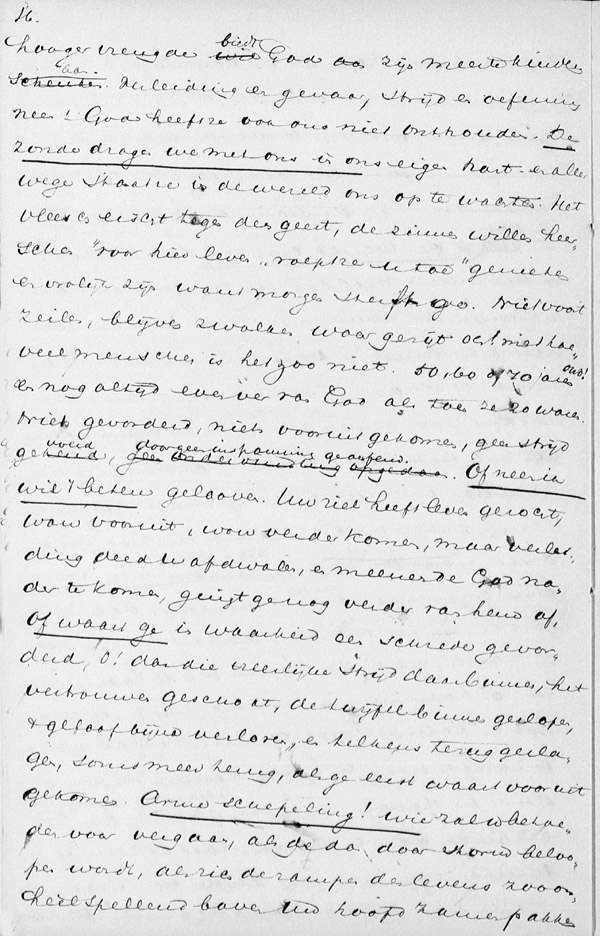 16.
hooger vreugde biedt God aan zijn meerte kinderen
aan.
schenken. Verleiding en gevaar, strijd en oefening
neen! God heeft ze ook ons niet onthouden. De
zonde dragen we met ons in ons eigen hart en aller
wege staat ze in de wereld ons op te wachten. Het
vleesch tegen den geest, de zinnen willen heer
schen "voor hier leven" roept ze u toe "genieten
en vrolijk zijn want morgen sterft ge. Niet voort
zeilen, blijven zwalken waar ge zijt och! met hoe
veel menschen is het zoo niet. 50, 60 of 70 jaren oud!
en nog altijd even ver van God als toen ze 20 waren.
Niets gevorderd, niets vooruitgekomen, geen strijd
gekend, door geen inspanning
Of neen ik
wil 't beter gelooven. Uw ziel heeft leven gezocht,
wou vooruit, wou verder komen, maar verlei-
ding deed u afdwalen, en meenende God na-
der te komen, gingt ge nog verder van hem af.
Of waart ge in waarheid een schrede gevor-
derd, O! dan die vreeslijke strijd daarbinnen, het
vertrouwen geschokt, de twijfel binnengeslopen,
't geloof bijna verloren, en telkens teruggesla-
gen, soms meer terug, als ge eerst waart vooruit
gekomen. Arme schepeling! wie zal u behoe-
den voor vergaan, als ge dan door storm beloo-
pen wordt, als zich de rampen des levens zoo on-
heilspellend boven uw hoofd zamenpakken